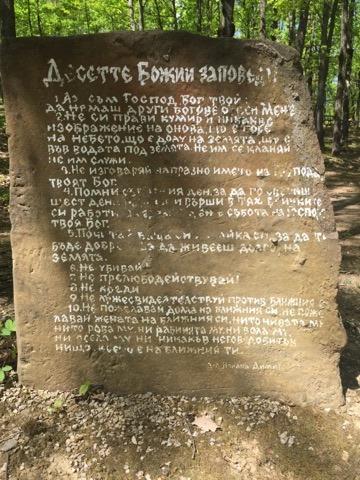 Десетте Божии заповеди
1. Аз съм Господ Бог твой
да нямаш други богове освен Мене
2. Не си прави кумир и никакво
изображение на онова, що е горе
на небето, що е долу на земята, що е
във водата под земята не им се кланяй
не им служи.
3. Не изговаряй напразно името на Господа
твоят Бог.
4. Помни съботния ден, за да го
шест дена и върши в тях всичките
си работи, ден е събота на Господ
твоя Бог.
5. Почитай баща си и майка си, за да ти
бъде добре и да живееш дълго на
земята.
6. Не убивай!
7. Не прелюбодействувай!
8. Не кради
9. Не лъжесвидетелствуй против ближния си
10. Не пожелавай дома на ближния си, не
лавай жената на ближния си, нито нивата му
нито роба му, ни рабинята му ни вола му,
ни осела му ни никакъв негов добитък
нищо, което е на ближния ти.